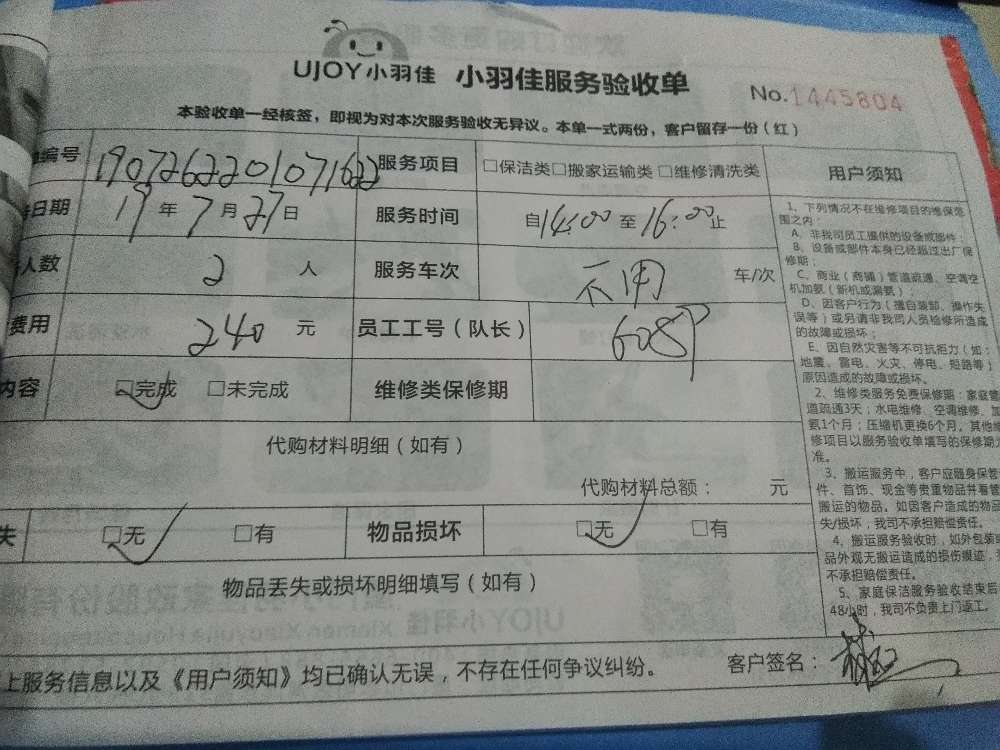 UJOY小羽佳 小羽佳服务验收单 No.1445804
本验收单一经核签，即视为对本次服务验收无异议。本单一式两份，客户留存一份（红）
编号 1907262201071622 服务项目 □保洁类□搬家运输类 □维修清洗类 用户须知
日期 19年7月27日 服务时间 自14:00至16:00止
人数 2 人 服务车次 不用 车/次
费用 240 元 员工工号（队长） 608
内容 □完成 □未完成 维修类保修期
代购材料明细（如有）
代购材料总额： 元
失 □无 □有 物品损坏 □无 □有
物品丢失或损坏明细填写（如有）
上服务信息以及《用户须知》均已确认无误，不存在任何争议纠纷。 客户签名：
1、下列情况不在维修项目的维保范
围之内：
A、非我司员工提供的设备或部件；
B、设备或部件本身已经超过出厂保
修期；
C、商业（商铺）管道疏通、空调空
机加氨（新机或漏氨）
D、因客户行为（擅自装卸、操作失
误等）或另请非我司人员检修所造成
的故障或损坏；
E、因自然灾害等不可抗拒力（如：
地震、雷电、火灾、停电、短路等）
原因造成的故障或损坏。
2、维修类服务免费保修期：家庭管
道疏通3天；水电维修、空调维修、加
氨1个月；压缩机更换6个月。其他维
修项目以服务验收单填写的保修期为
准。
3、搬运服务中，客户应随身保管
件、首饰、现金等贵重物品并看管
搬运的物品。如因客户造成的物品
失/损坏，我司不承担赔偿责任。
4、搬运服务验收时，如外包装
品外观无搬运造成的损伤痕迹，
不承担赔偿责任。
5、家庭保洁服务验收结束后
48小时，我司不负责上门返工。